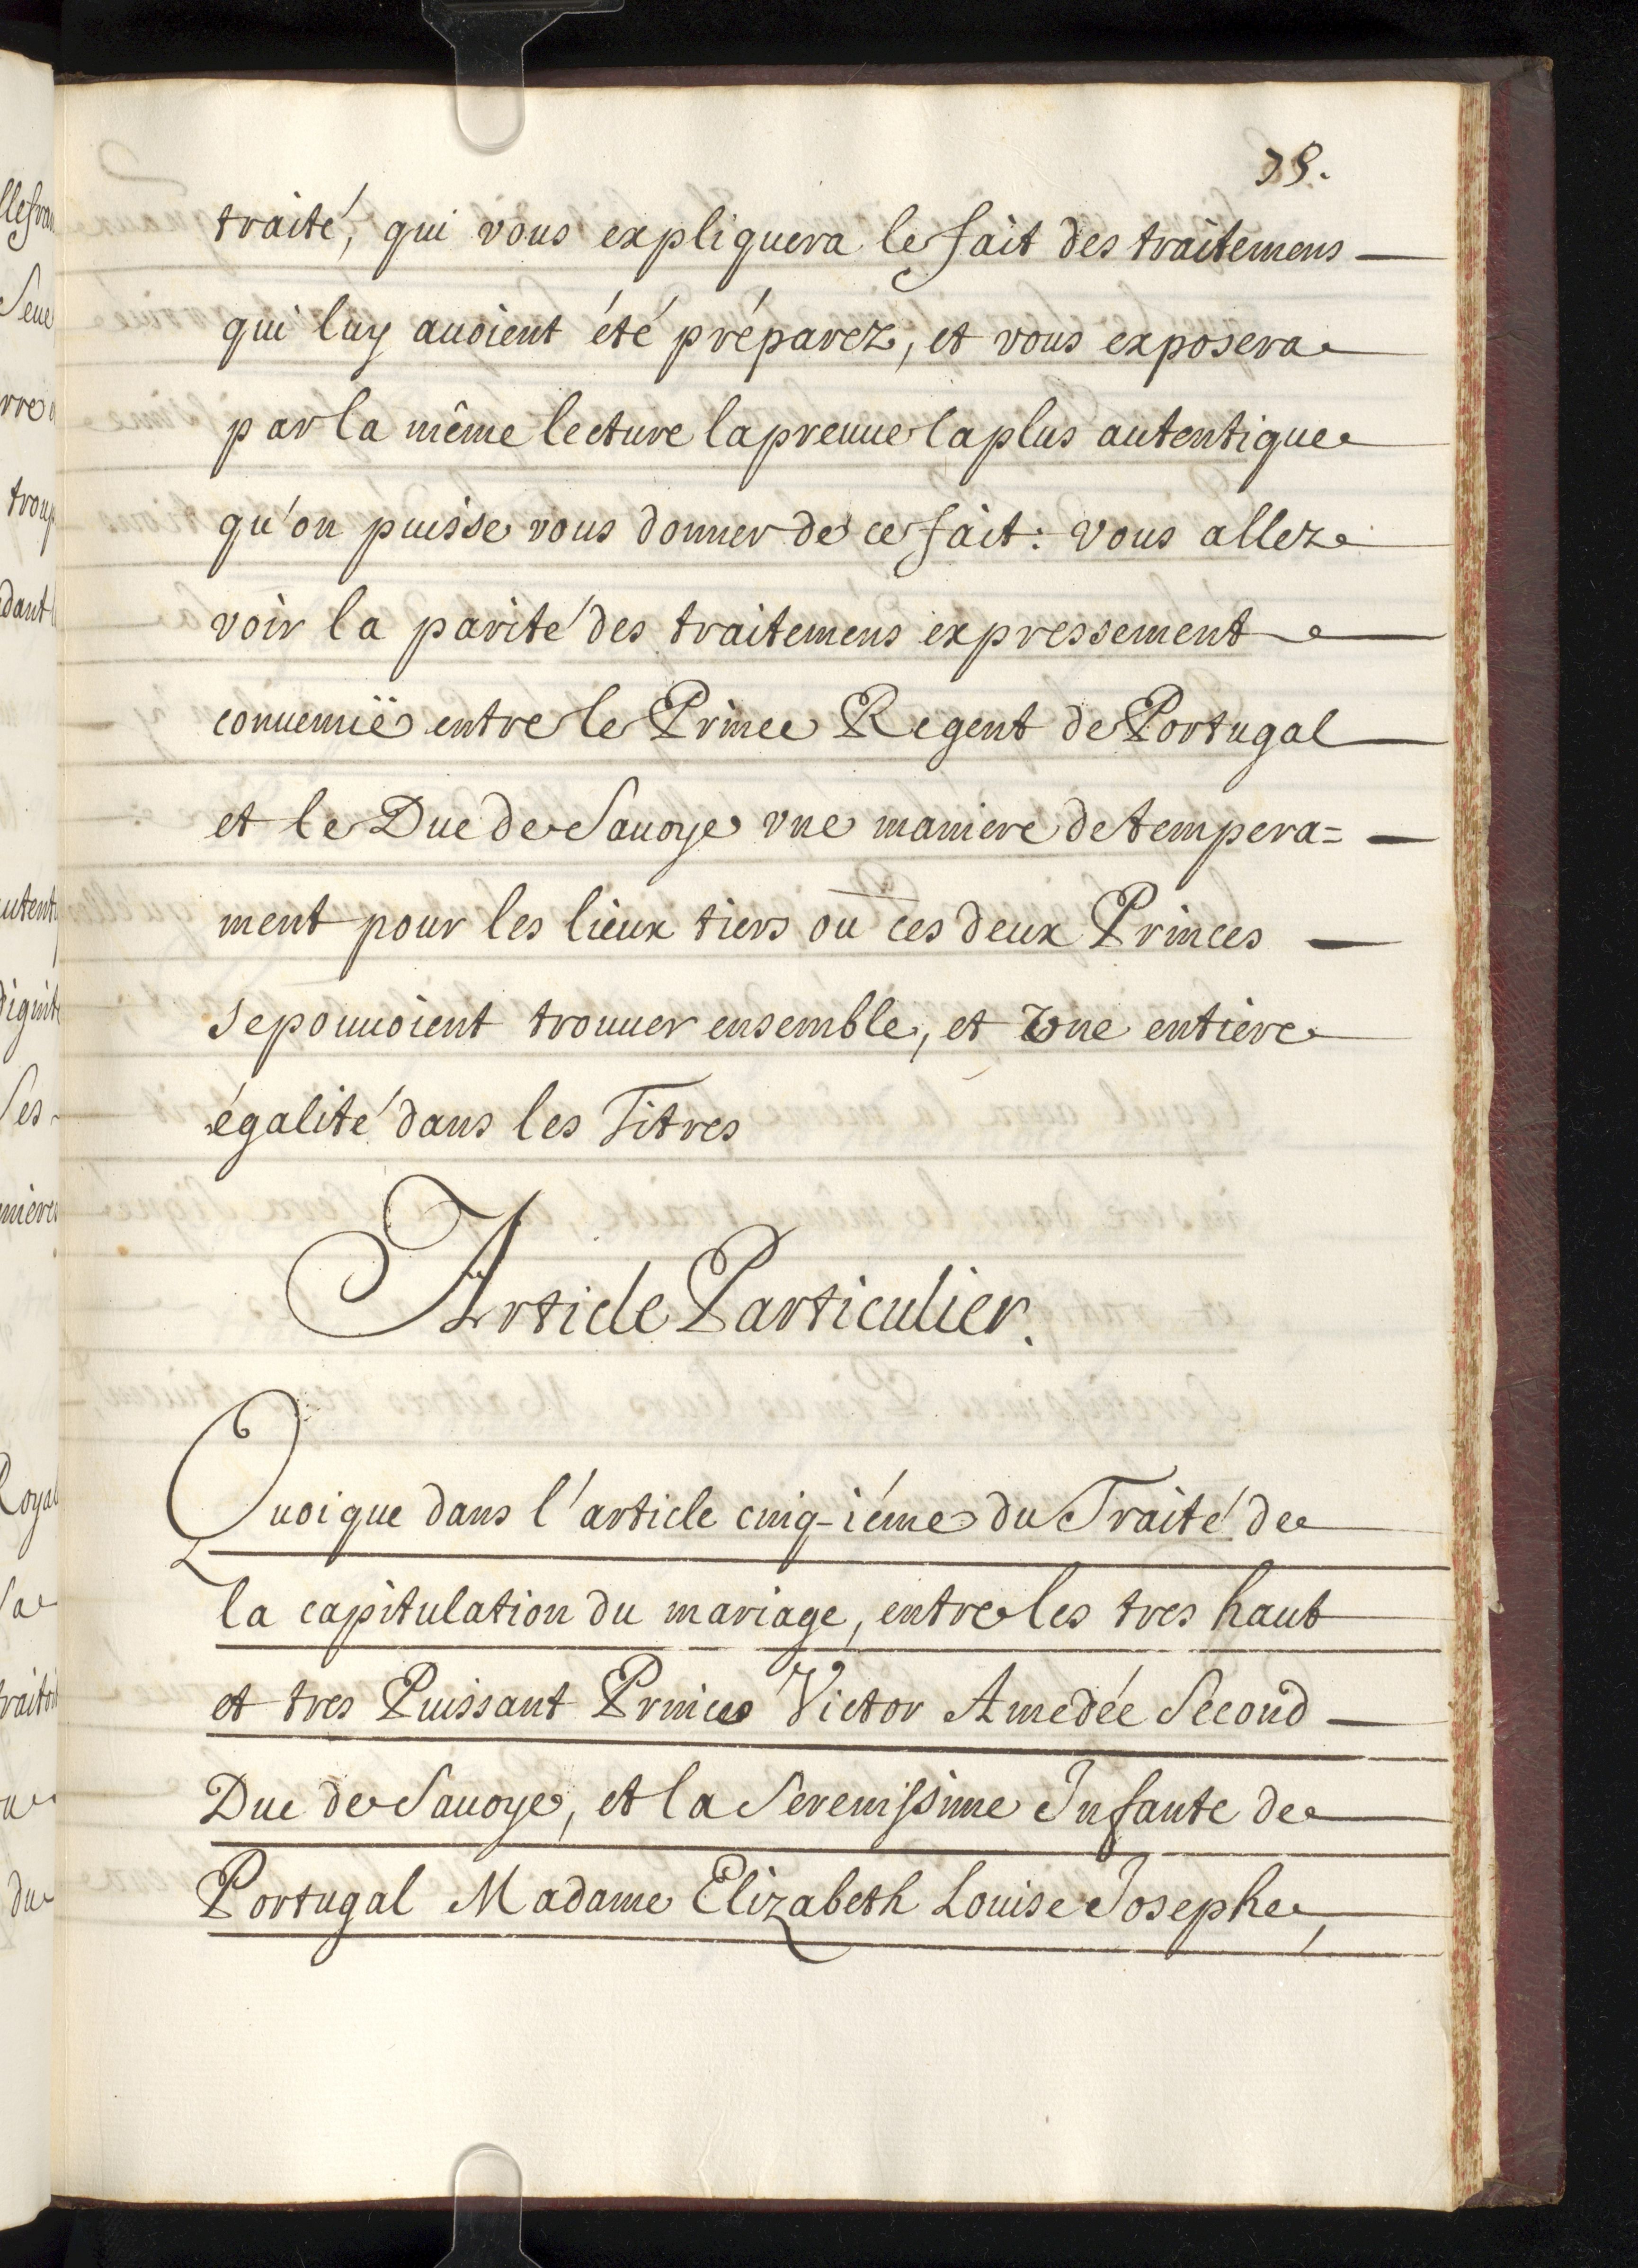 39.
traité, qui vous expliquera le fait des traitemens
qui luy auoient été préparez, et vous exposera
par la même lecture la preuue la plus autentique
qu'on puisse vous donner de ce fait: vous allez
voir la parité des traitemens expressement
conuenüe entre le Prince Regent de Portugal
et le Duc de Sauoye vne maniere de tempera=
ment pour les lieux tiers ou ces deux Princes
se pouuoient trouuer ensemble, et vne entiere
égalité dans les Titres
Article Particulier.
Quoique dans l'article cinq-iéme du Traité de
la capitulation du mariage, entre les tres haut
et tres Puissant Prince Victor Amedée Second
Duc de Sauoye, et la Serenissime Infante de
Portugal Madame Elizabeth Louise Josephe,